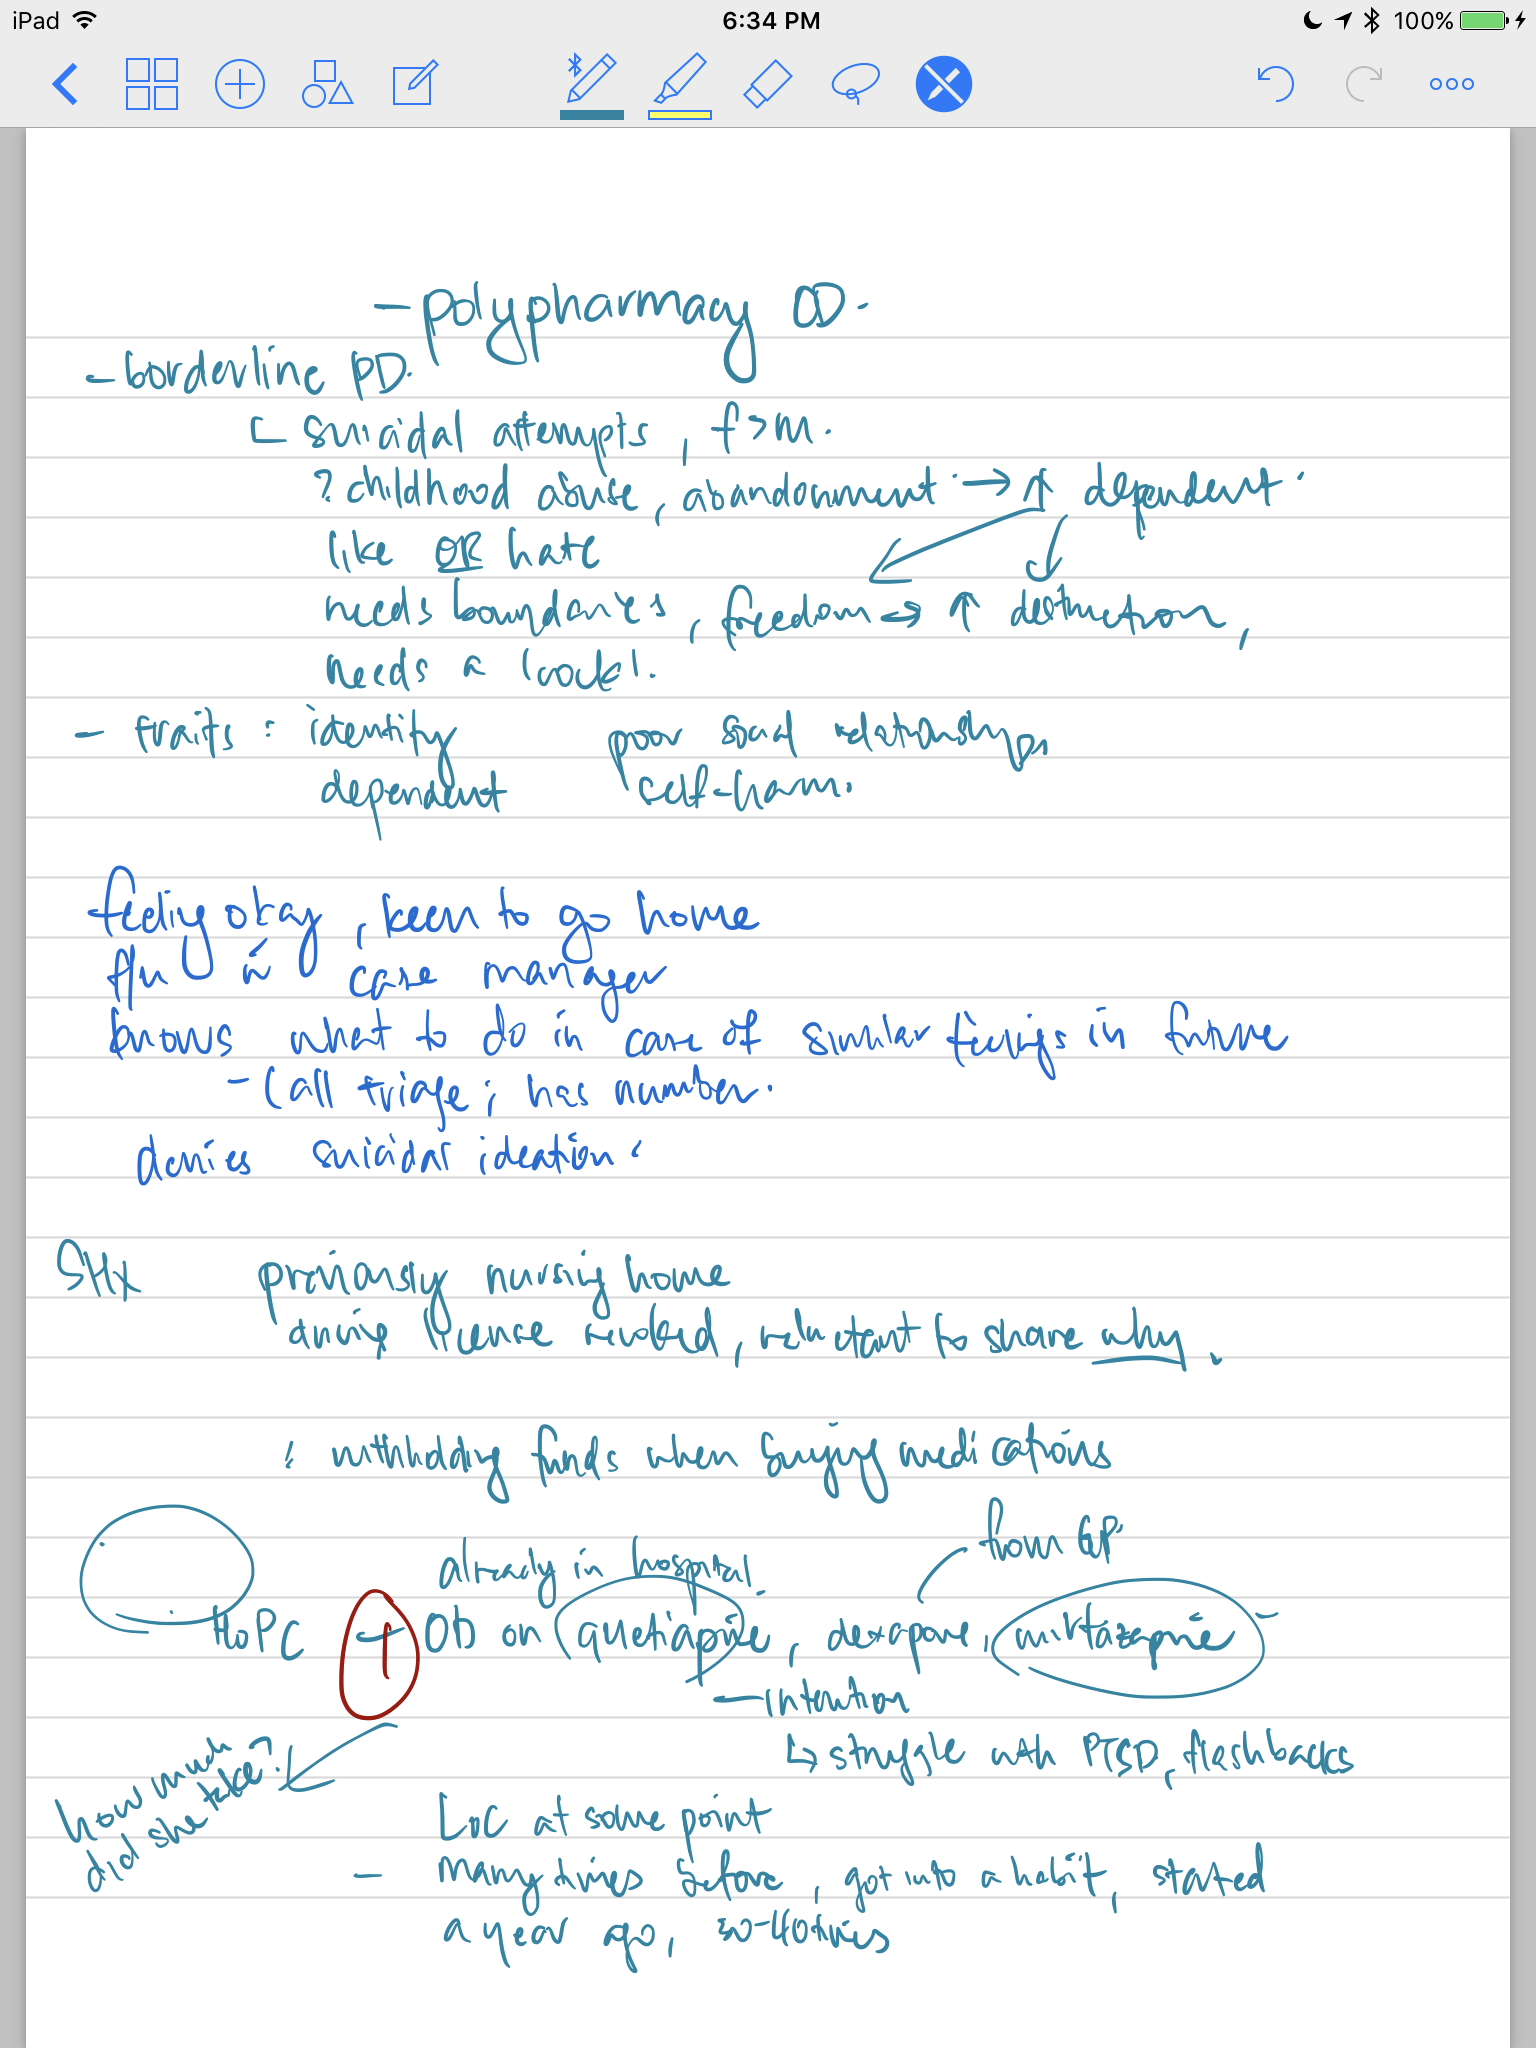 iPad 6:34 PM 100%
- polypharmacy OD.
- borderline PD.
suicidal attempts, f>m.
? childhood abuse, abandonment → ↑ dependent.
like OR hate
needs boundaries, freedom → ↑ destruction,
needs a
- traits: identity poor social relationships,
dependent self-harm.
feeling okay, keen to go home
case manager
knows what to do in case of similar feelings in future
- call triage; has number.
denies suicidal ideation.
SHx previously nursing home
driving license revoked, reluctant to share why.
withholding funds when buying medications
from GP.
already in hospital.
HoPC OD on quetiapine, mirtazapine -
- intention
↳ struggle with PTSD, flashbacks
how much did she take?
LoC at some point
- many times before, got into a habit, started
a year ago, 30-40 times